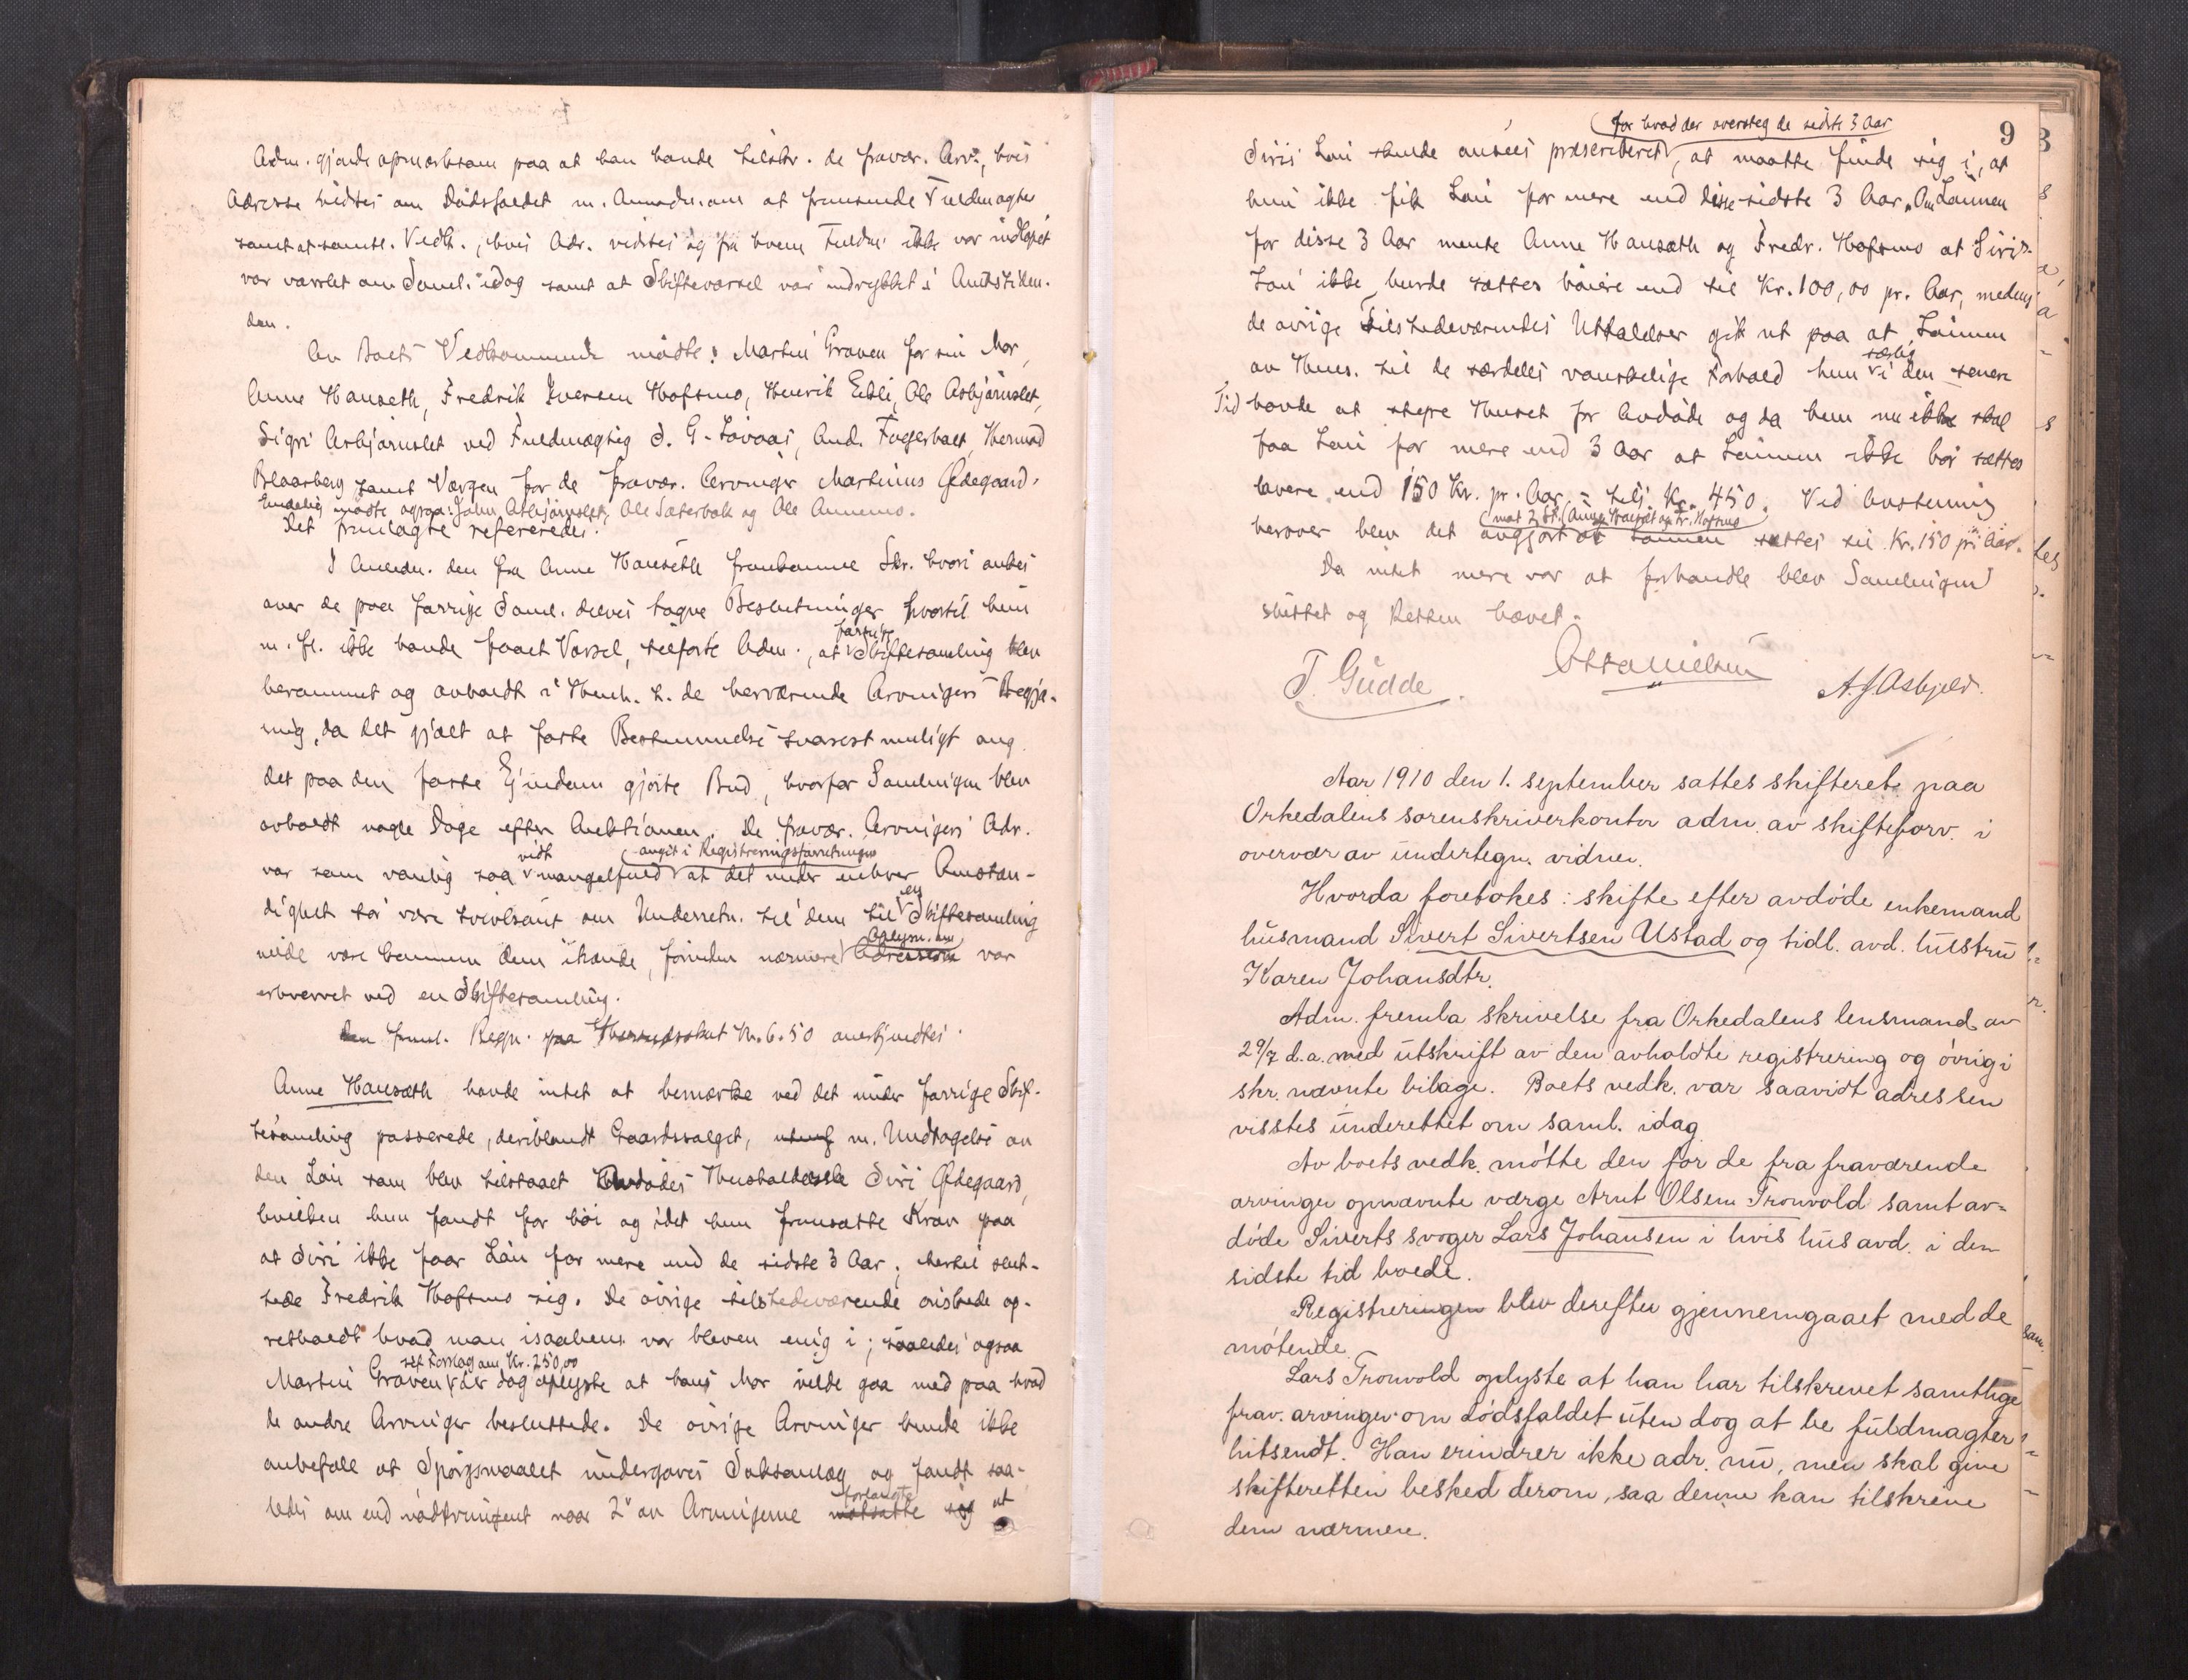 Adm. gjorde opmerksom paa at han havde tilskr. de fravær. Arv., hvis
Adresse vidstes om Dødsfaldet m. Anmodn. om at fremsende Fuldmagter
samt at samtl. Vedk., hvis Adr. vidstes og fra hvem Fuldm. ikke var indløpet
var varslet om Saml. idag samt at Skiftevarsel var indrykket i Amtstiden-
den.
Av Boets Vedkommende mødte: Martin Graven for sin Mor,
Anne Hanseth, Fredrik Iversen Hofsmo, Henrik Eikli, Ole Asbjørnslet,
Sigri Asbjørnslet ved Fuldmægtig S. G. Løvaas, And. Fagerholt, Hermod
Blaasberg samt Værgen for de fravær. Arvinger Martinus Ødegaard.
Endelig mødte ogsaa: John Asbjørnslet, Ole Sæterbak og Ole Annemo.
Det fremlagte refereredes.
I Anledn. den fra Anne Hanseth fremkomne Skr. hvori ankes
over de paa forrige Saml. delvis tagne Beslutninger hvortil hun
m. fl. ikke havde faaet Varsel, tilførte Adm., at forrige Skiftesamling blev
berammet og avholdt i Henh. t. de herværende Arvingers Begjæ-
ring, da det gjaldt at fatte Bestemmelse snarest muligt ang.
det paa den faste Ejendom gjorte Bud, hvorfor Samlingen blev
avholdt nogle Dage efter Auktionen. De fravær. Arvingers Adr.
vidt angit i Registreringsforretningen
var som vanlig saa mangelfuld at det under enhver Omstæn-
dighet bør være tvivlsomt om Underretn. til dem til en Skiftesamling
Oplysn. om
vilde være kommen dem ihænde, forinden nærmere Adressen var
erhvervet ved en Skiftesamling.
Den freml. Regn. paa Herredsskat Kr. 6.50 anerkjendtes.
Anne Hanseth havde intet at bemærke ved det under forrige Skif-
tesamling passerede, deriblandt Gaardssalget, m. Undtagelse av
den Løn som blev tilstaaet Avdødes Husholderske Siri Ødegaard,
hvilken hun fandt for høi og idet hun fremsatte Krav paa
at Siri ikke faar Løn for mere end de sidste 3 Aar; hertil slut-
tede Fredrik Hofsmo sig. De øvrige tilstedeværende ønskede op-
retholdt hvad man isaahens. var bleven enig i; saaledes ogsaa
set Forslag om Kr. 250,00
Martin Graven der dog oplyste at hans Mor vilde gaa med paa hvad
de andre Arvinger besluttede. De øvrige Arvinger kunde ikke
anbefale at Spørgsmaalet undergaves Søksmaal og fandt saa-
forlangte
ledes om end nødtvungent naar 2 av Arvingerne motsatte sig at
9
for hvad der oversteg de sidste 3 Aar
Siris Løn skulde ansees præscriberet, at maatte finde sig i, at
hun ikke fik Løn for mere end disse sidste 3 Aar. Om Lønnen
for disse 3 Aar mente Anne Hanseth og Fredr. Hofsmo at Siris
Løn ikke burde sættes høiere end til Kr. 100,00 pr. Aar, medens
de øvrige Tilstedeværendes Uttalelser gik ut paa at Lønnen
særlig
av Hens. til de særdeles vanskelige Forhold hun i den senere
Tid havde at stepe Huset for Avdøde og da hun nu ikke skal
faa Løn for mere end 3 Aar at Lønnen ikke bør sættes
lavere end 150 Kr. pr. Aar = tils. Kr. 450. Ved Avstemning
mot 2 st. (Anne Hanseth og Fr. Hofsmo)
herover blev det avgjort at Lønnen sættes til Kr. 150 pr. Aar.
Da intet mere var at forhandle blev Samlingen
sluttet og Retten hævet.
Otto Nielsen
T. Gudde. A. J. Asbjelv.
Aar 1910 den 1. september sattes skifteret paa
Orkedalens sorenskriverkontor adm. av skifteforv. i
overvær av undertegn. vidner.
Hvorda foretokes: skifte efter avdøde enkemand
husmand Sivert Sivertsen Ustad og tidl. avd. hustru
Karen Johansdtr.
Adm. fremla skrivelse fra Orkedalens lensmand av
29/7 d.a. med utskrift av den avholdte registrering og øvrige i
skr. nævnte bilage. Boets vedk. var saavidt adressen
visstes underettet om saml. idag.
Av boets vedk. møtte den for de fra fraværende
arvinger opnævnte værge Arnt Olsen Tronvold samt av-
døde Siverts svoger Lars Johansen i hvis hus avd. i den
sidste tid boede.
Registreringen blev derefter gjennemgaaet med de
møtende.
Lars Tronvold oplyste at han har tilskrevet samtlige
frav. arvinger om dødsfaldet uten dog at be fuldmagter
hitsendt. Han erindrer ikke adr. nu, men skal give
skifteretten besked derom, saa denne kan tilskrive
dem nærmere.